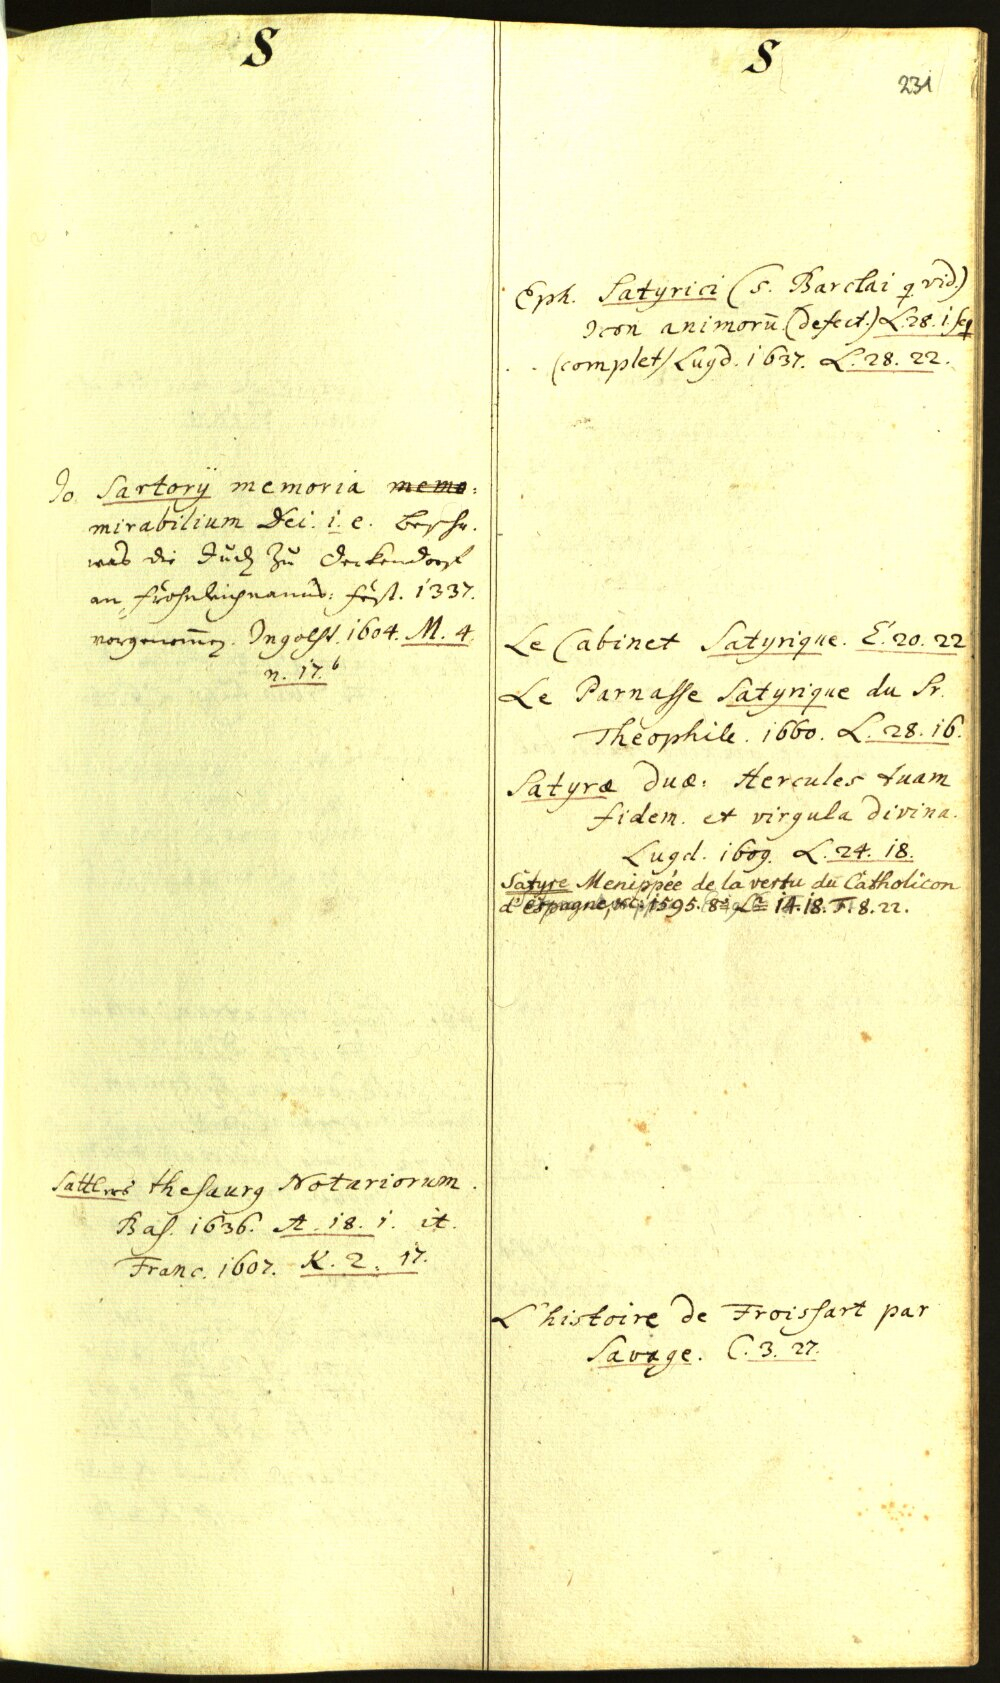 S
Jo. Sartorÿ memoria memo:
mirabilium Dei. i. e. Beschr.
was die Judē zu Deckendorf
an Frohnleichnambs: fest. 1337.
vorgenom̄en. Ingolst. 1604. M. 4.
n. 17.b
Sattlers thesaurq Notariorum.
Bas. 1636. A. 18. 1. it.
Franc. 1607. K. 2. 17.
S
231
Eph. Satyrici (s. Barclai q. vid.)
Icon animorū. (defect.) L. 28. 1. seq
(complet) Lugd. 1637. L. 28. 22.
Le Cabinet Satyrique. E. 20. 22
Le Parnasse Satyrique du Sr.
Theophile. 1660. L. 28. 16.
Satyræ duæ: Hercules tuam
fidem. et virgula divina.
Lugd. 1609. L. 24. 18.
Satyre Menippée de la vertu du Catholicon
d'Espagne, 1595. 8° 14. 18. F. 8. 22.
L'histoire de Froissart par
Savage. C. 3. 27.